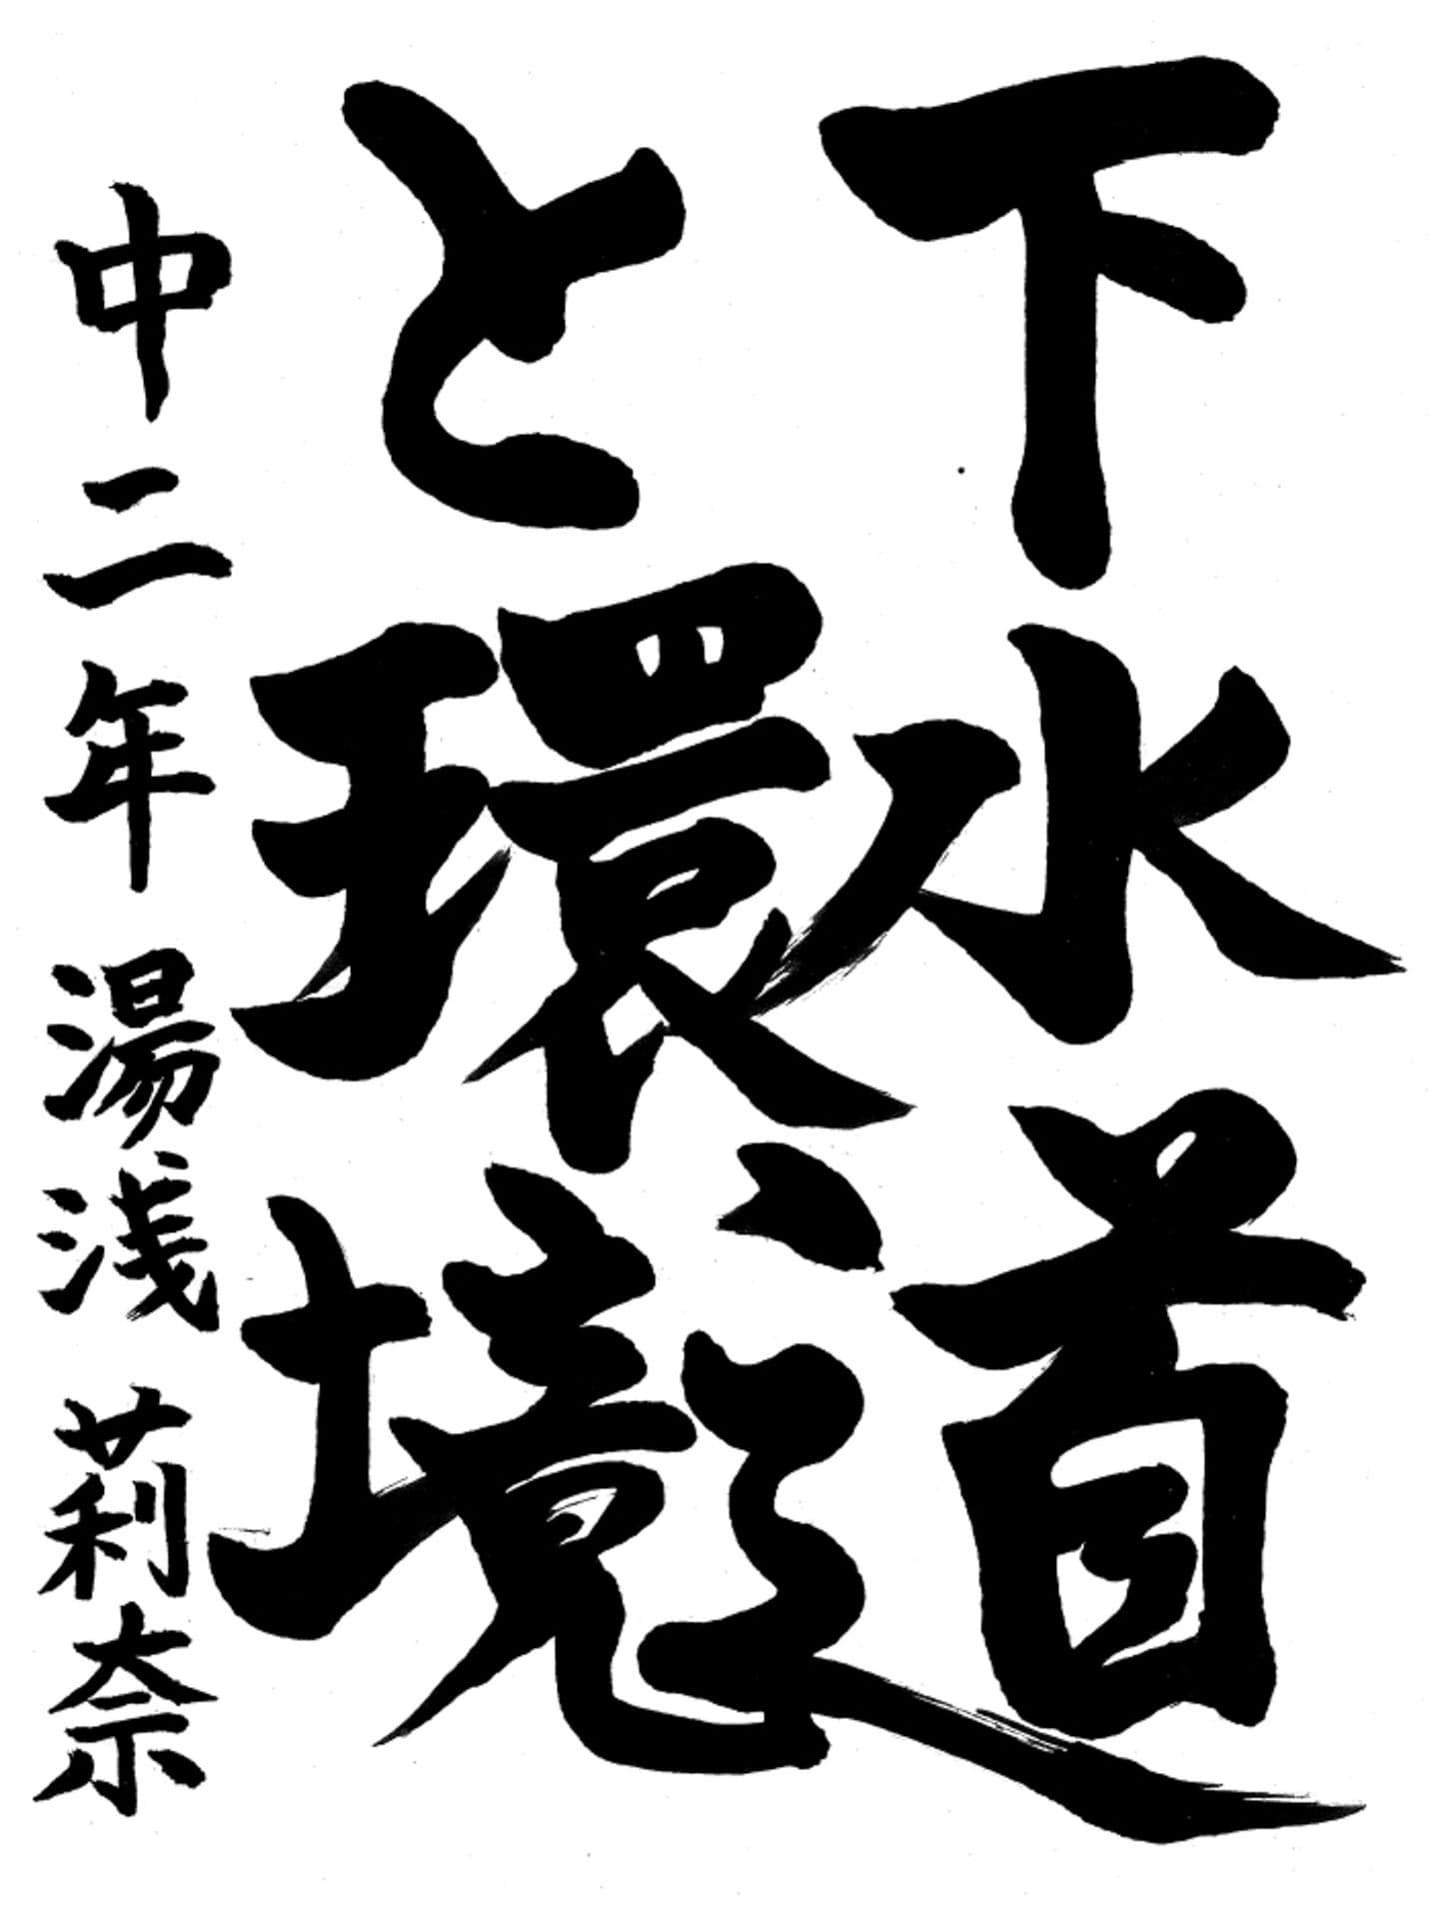 下水道
と環境
中二年 湯浅 莉奈